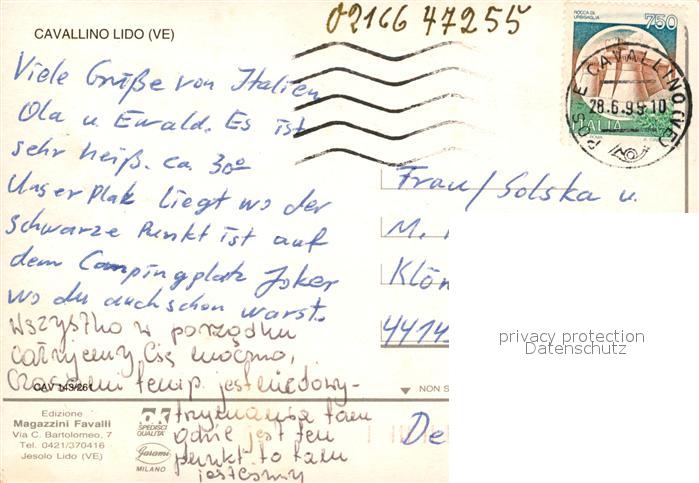 CAVALLINO LIDO (VE)
02166 47255
ROCCA DI
URBISAGLIA
750
ITALIA
POSTE CAVALLINO (VE)
28.6.99-10
Viele Grüße von Italien
Ola u. Ewald. Es ist
sehr heiß. ca. 30°
Unser Platz liegt wo der
schwarze Punkt ist auf
dem Campingplatz Joker
wo du auch schon warst.
Wszystko w porządku
całujemy Cię mocno,
Czasami temp. jest niedowy-
trzymania tam
gdzie jest ten
punkt to tam
jesteśmy
Frau/Solska u.
M.
Klön
44145
privacy protection
Datenschutz
CAV 143/261
NON S
Edizione
Magazzini Favalli
Via C. Bartolomeo, 7
Tel. 0421/370416
Jesolo Lido (VE)
ok
SPEDISCI
QUALITA'
Garami
MILANO
De